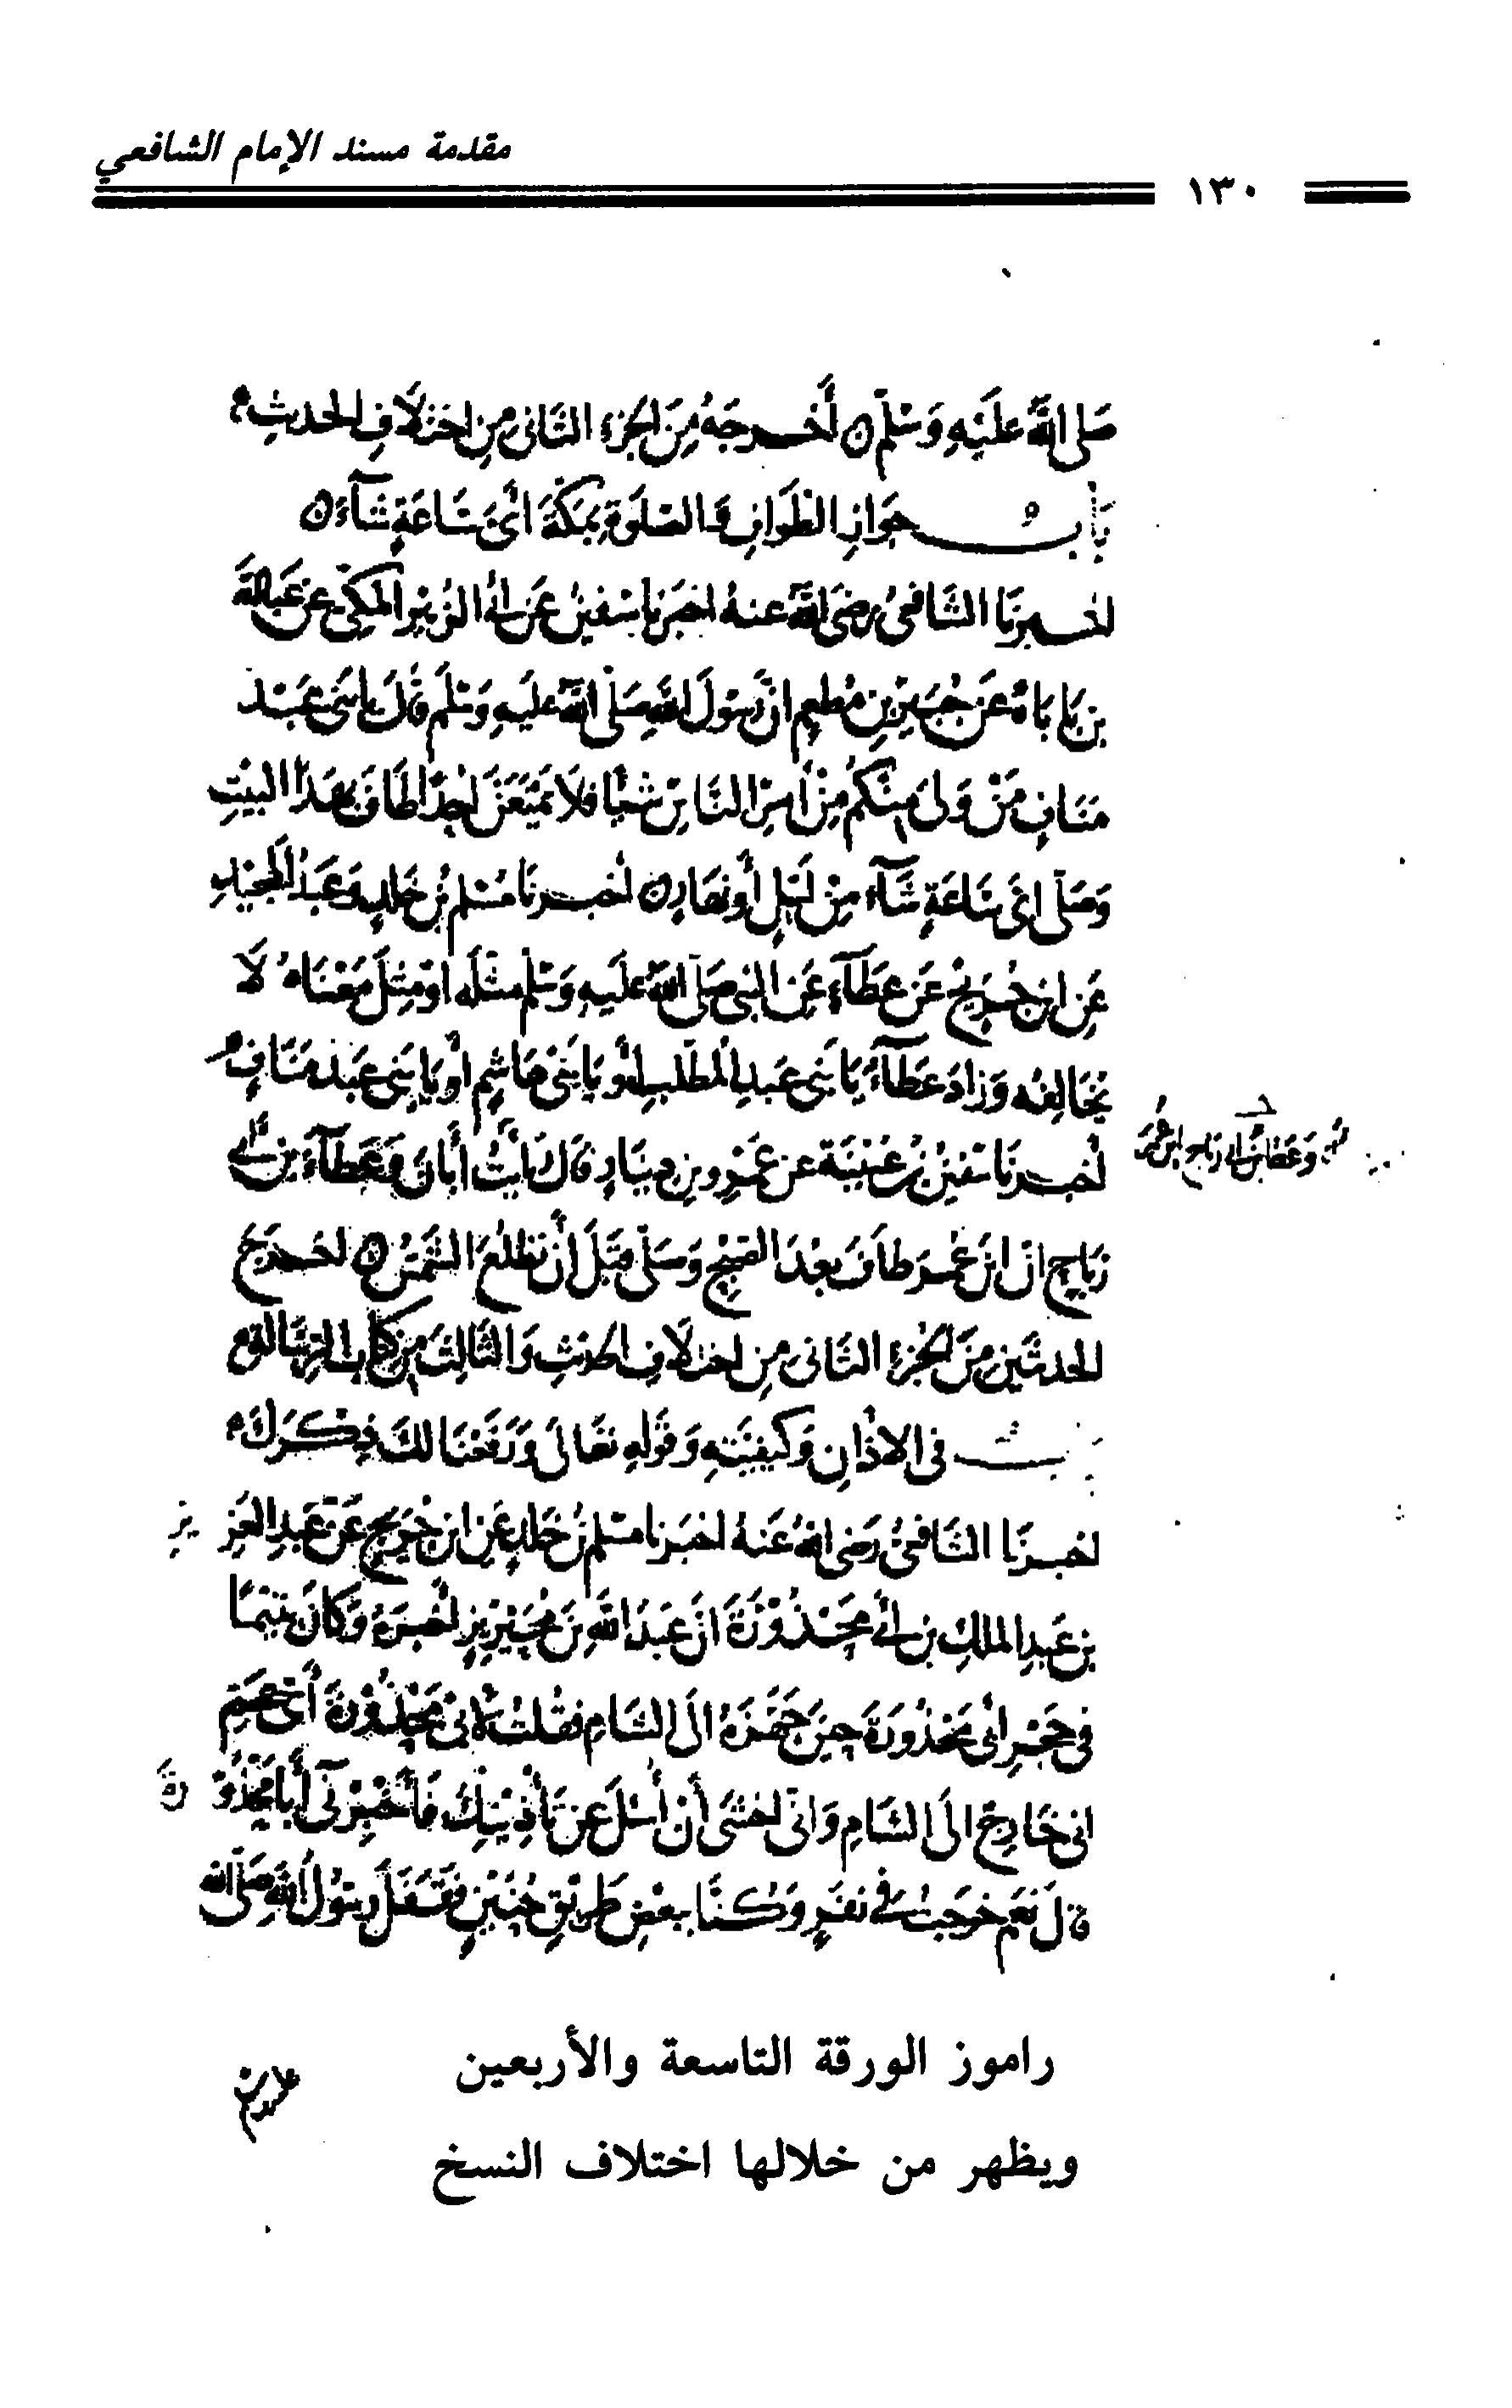 مقدمة مسند الإمام الشافعي
١٣٠
صَلى اللَّهُ عَلَيْهِ وَسَلَّمَ ٥ أَخْرجَهُ مِنَ الجُزْءِ الثَّانِي مِنِ اخْتِلَافِ الحَدِيثِ ٥
بَابُ جَوَازِ الطَّوَافِ وَالصَّلَوةِ بِمَكَّةَ ائَّ سَاعَةٍ شَآءَ ٥
اخبرنَا الشَّافِعِيُّ رضَىَ اللهُ عنهُ اخبَرَنا سُفينُ عَن ابى الزُبَيْرِ المَكِّيِّ عَن عَبدِاللهِ
بنِ بَابَاهُ عَن جُبَيْرِ بنِ مُطعِمٍ انَّ رَسُولَ اللهِ صَلى اللهُ عَلَيهِ وَسَلَمَ قالَ يا بَنى عَبْد
مَنَافٍ مَنْ وَلىَ مِنكُم مِنْ اَمرِ النَّاسِ شَيْأً فلَا يَمْنَعَنَّ احَدًا طَافَ بهَذَا البَيْتِ
وَصَلى اىَّ سَاعَةٍ شَآءَ مِنْ لَيْلٍ أَو نهَارٍ ٥ اخبرنَا مُسْلمُ بنُ خَالدٍ وَعَبدُ المَجِيْدِ
عَنِ ابنِ جُرَيْجٍ عَن عَطَآءٍ عَنِ النَّبِى صَلى اللهُ عَلَيهِ وَسَلَّم مثلَه اوْ مِثلَ مَعْنَاهُ لَا
يُخَالِفُه وَزادَ عَطَآءٌ يَا بَنى عَبدِ المُطَّلبِ أَو يَا بَنى هَاشِمٍ أَو يَا بَنى عَبدِ مَنَافٍ ٥
أخبرنَا سُفينُ بنُ عُيَيْنَة عن عَمرِو بنِ دِينَارٍ قالَ رَأَيْتُ أَنَا وَعَطَآءُ بن ابى
رَبَاحٍ ان ابنَ عُمر طَافَ بعْدَ الصُبْحِ وَصَلى قبْلَ أَنْ تَطْلُعَ الشَّمْسُ ٥ اخرجَ
الحَدِيثَينِ مِنَ الجُزْءِ الثَّانى مِنِ اختلَافِ الحَدِيثِ وَالثَّالِثَ مِن كِتَابِ الرِّسَالَةِ ٥
بَابٌ فى الاذَانِ وَكيفِيَّتِهِ وَقَولِهِ تعَالَى وَرَفَعْنَا لكَ ذِكْرَكَ ٥
اخبرنَا الشَّافِعىُّ رَضىَ اللهُ عَنهُ اخبَرنا مُسْلمُ بنُ خَالدٍ عَنِ ابنِ جُرَيجٍ عَن عَبدِ العَزِيزِ
بنِ عَبدِ الملكِ بن ابى مَحْذُورَةَ انَّ عَبدَ اللهِ بنَ مُحَيْرِيزٍ أَخبَرَهُ وَكَانَ يَتيمًا
فِى حَجْرِ ابى مَحْذُورَةَ حِينَ جَهَّزَهُ الَى الشَّامِ فقُلتُ لابى مَحْذُورَةَ أَى عَمِّ
انى خَارِجٌ الَى الشَّامِ وَانّى اخشَى أَن أُسْئلَ عَن تَأْذِينِكَ فَأَخبِرْنى أَبَا مَحْذُورَةَ
قالَ نعَم خرَجتُ فى نَفَرٍ وَكُنَّا ببَعْضِ طَرِيقِ حُنَيْنٍ فقَفلَ رَسُولُ اللهِ صَلى اللهُ
راموز الورقة التاسعة والأربعين
ويظهر من خلالها اختلاف النسخ